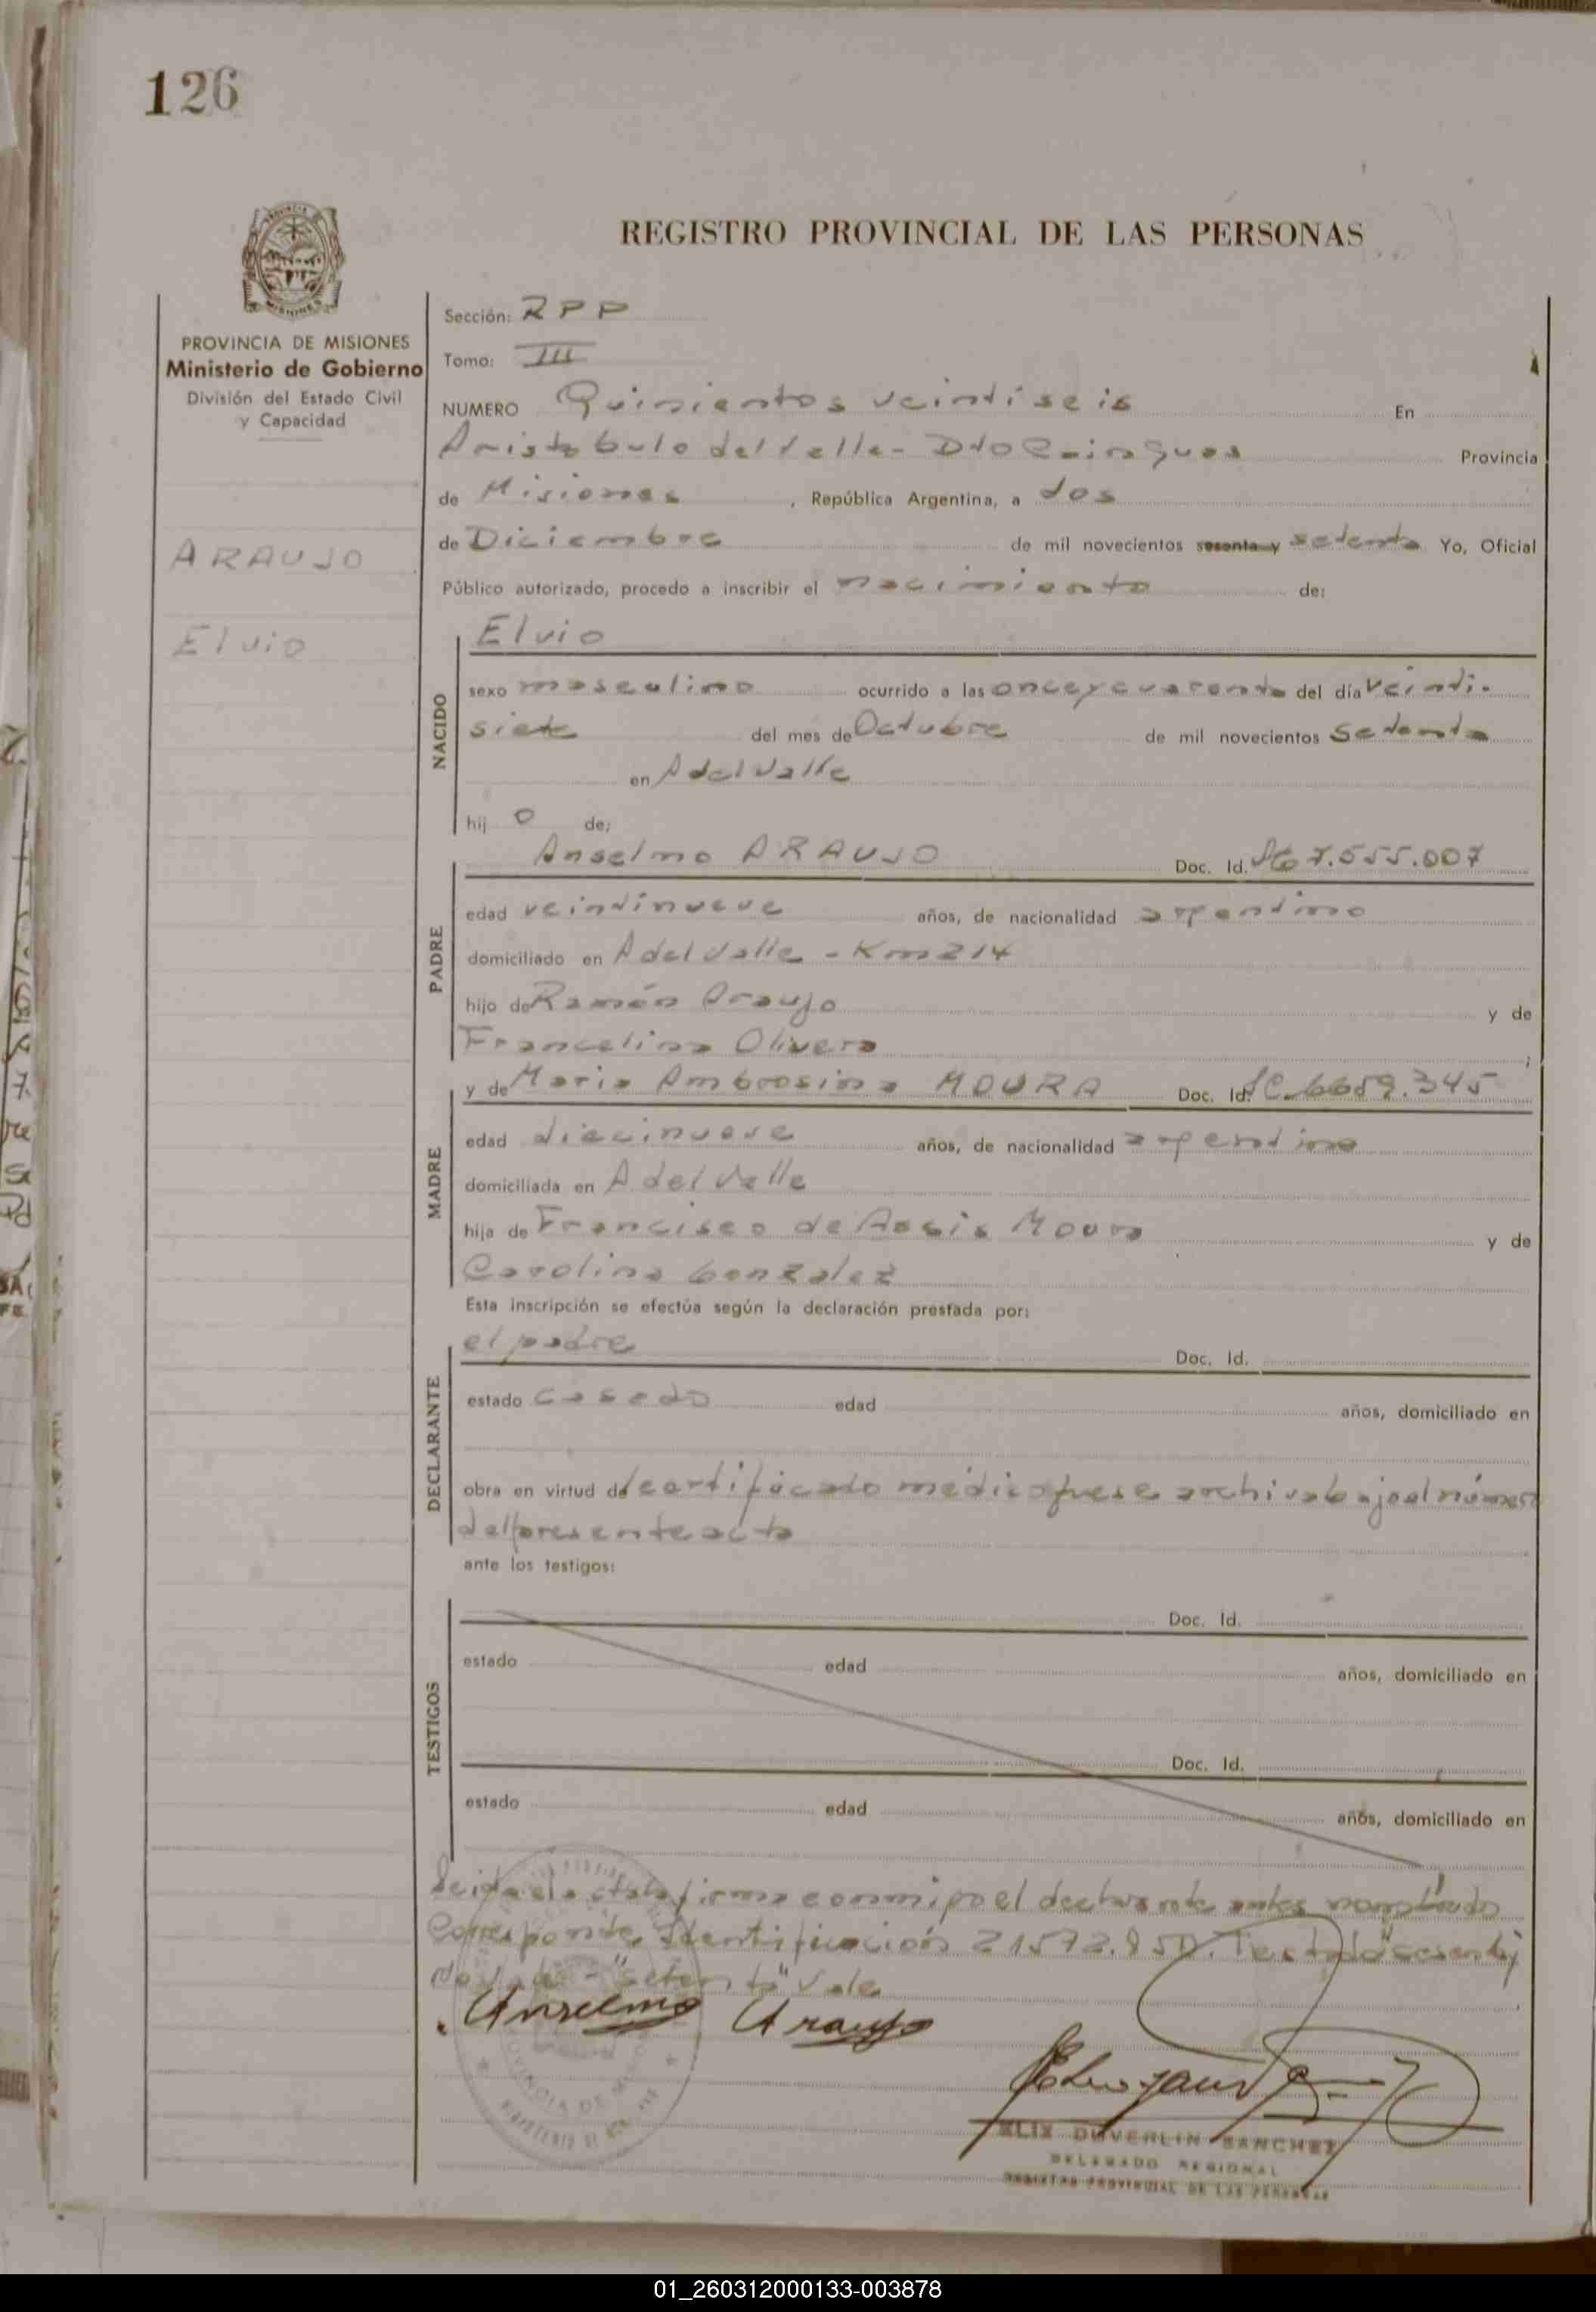 126
REGISTRO PROVINCIAL DE LAS PERSONAS
PROVINCIA DE MISIONES
Ministerio de Gobierno
División del Estado Civil
y Capacidad
ARAUJO
Elvio
Sección: RPP
Tomo: III
NUMERO Quinientos veintiseis En
Aristobulo del Valle - Dto Cainguas Provincia
de Misiones , República Argentina, a dos
de Diciembre de mil novecientos sesenta y setenta Yo, Oficial
Público autorizado, procedo a inscribir el nacimiento de:
NACIDO
Elvio
sexo masculino ocurrido a las once y cuarenta del día veinti-
siete del mes de Octubre de mil novecientos setenta
en A del Valle
hij o de:
PADRE
Anselmo ARAUJO Doc. Id. 7.555.007
edad veintinueve años, de nacionalidad argentino
domiciliado en A del Valle - Km 214
hijo de Ramón Araujo y de
Francelina Olivera ;
MADRE
y de Maria Ambrosina MOURA Doc. Id. 6.659.345
edad diecinueve años, de nacionalidad argentina
domiciliada en A. del Valle
hija de Francisco de Assis Moura y de
Carolina Gonzalez
Esta inscripción se efectúa según la declaración prestada por:
DECLARANTE
el padre Doc. Id.
estado casado edad años, domiciliado en
obra en virtud de certificado médico que se archiva bajo el número
del presente acta
ante los testigos:
TESTIGOS
Doc. Id.
estado edad años, domiciliado en
Doc. Id.
estado edad años, domiciliado en
Leida el acta la firma conmigo el declarante antes nombrado
Corresponde Identificación 21572.950. Testado "sesenta y
"setenta" Vale
Anselmo Araujo
ELIX DUVERLIN SANCHEZ
DELEGADO REGIONAL
REGISTRO PROVINCIAL DE LAS PERSONAS
01_260312000133-003878